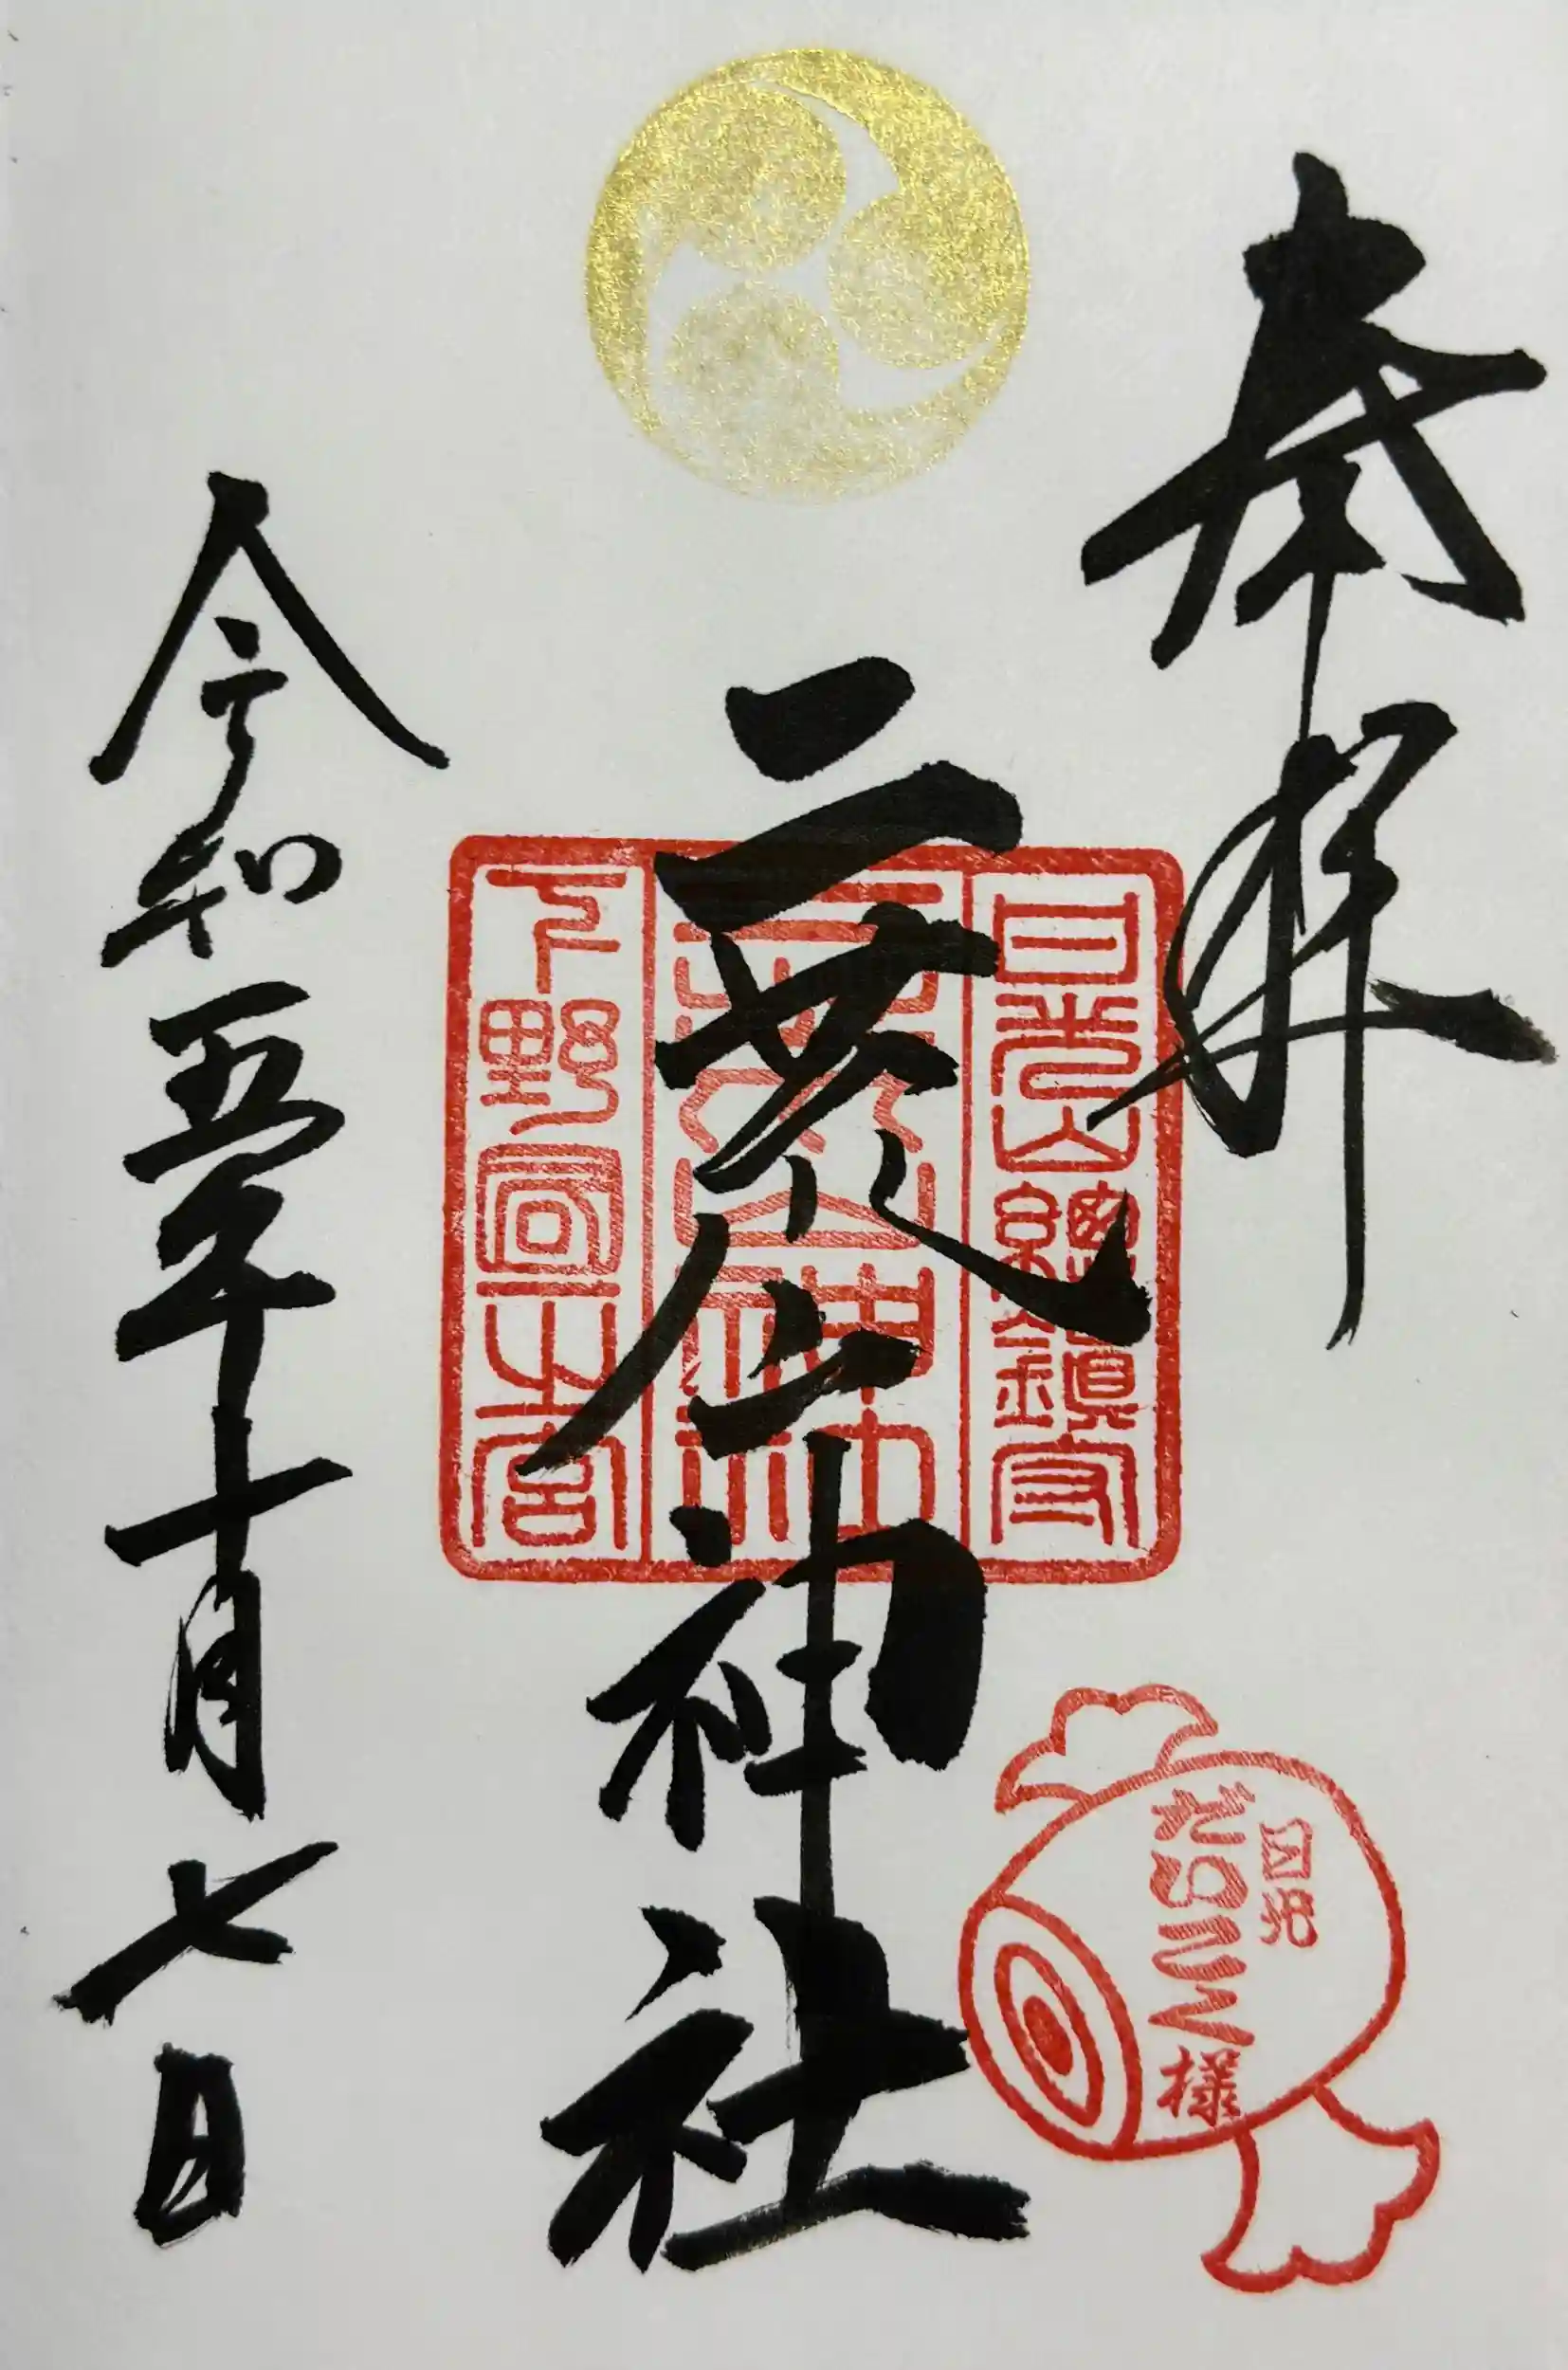 奉拝
二荒山神社
日光山總鎮守
二荒山神社
下野国一之宮
日光
だいこく様
令和五年十月七日